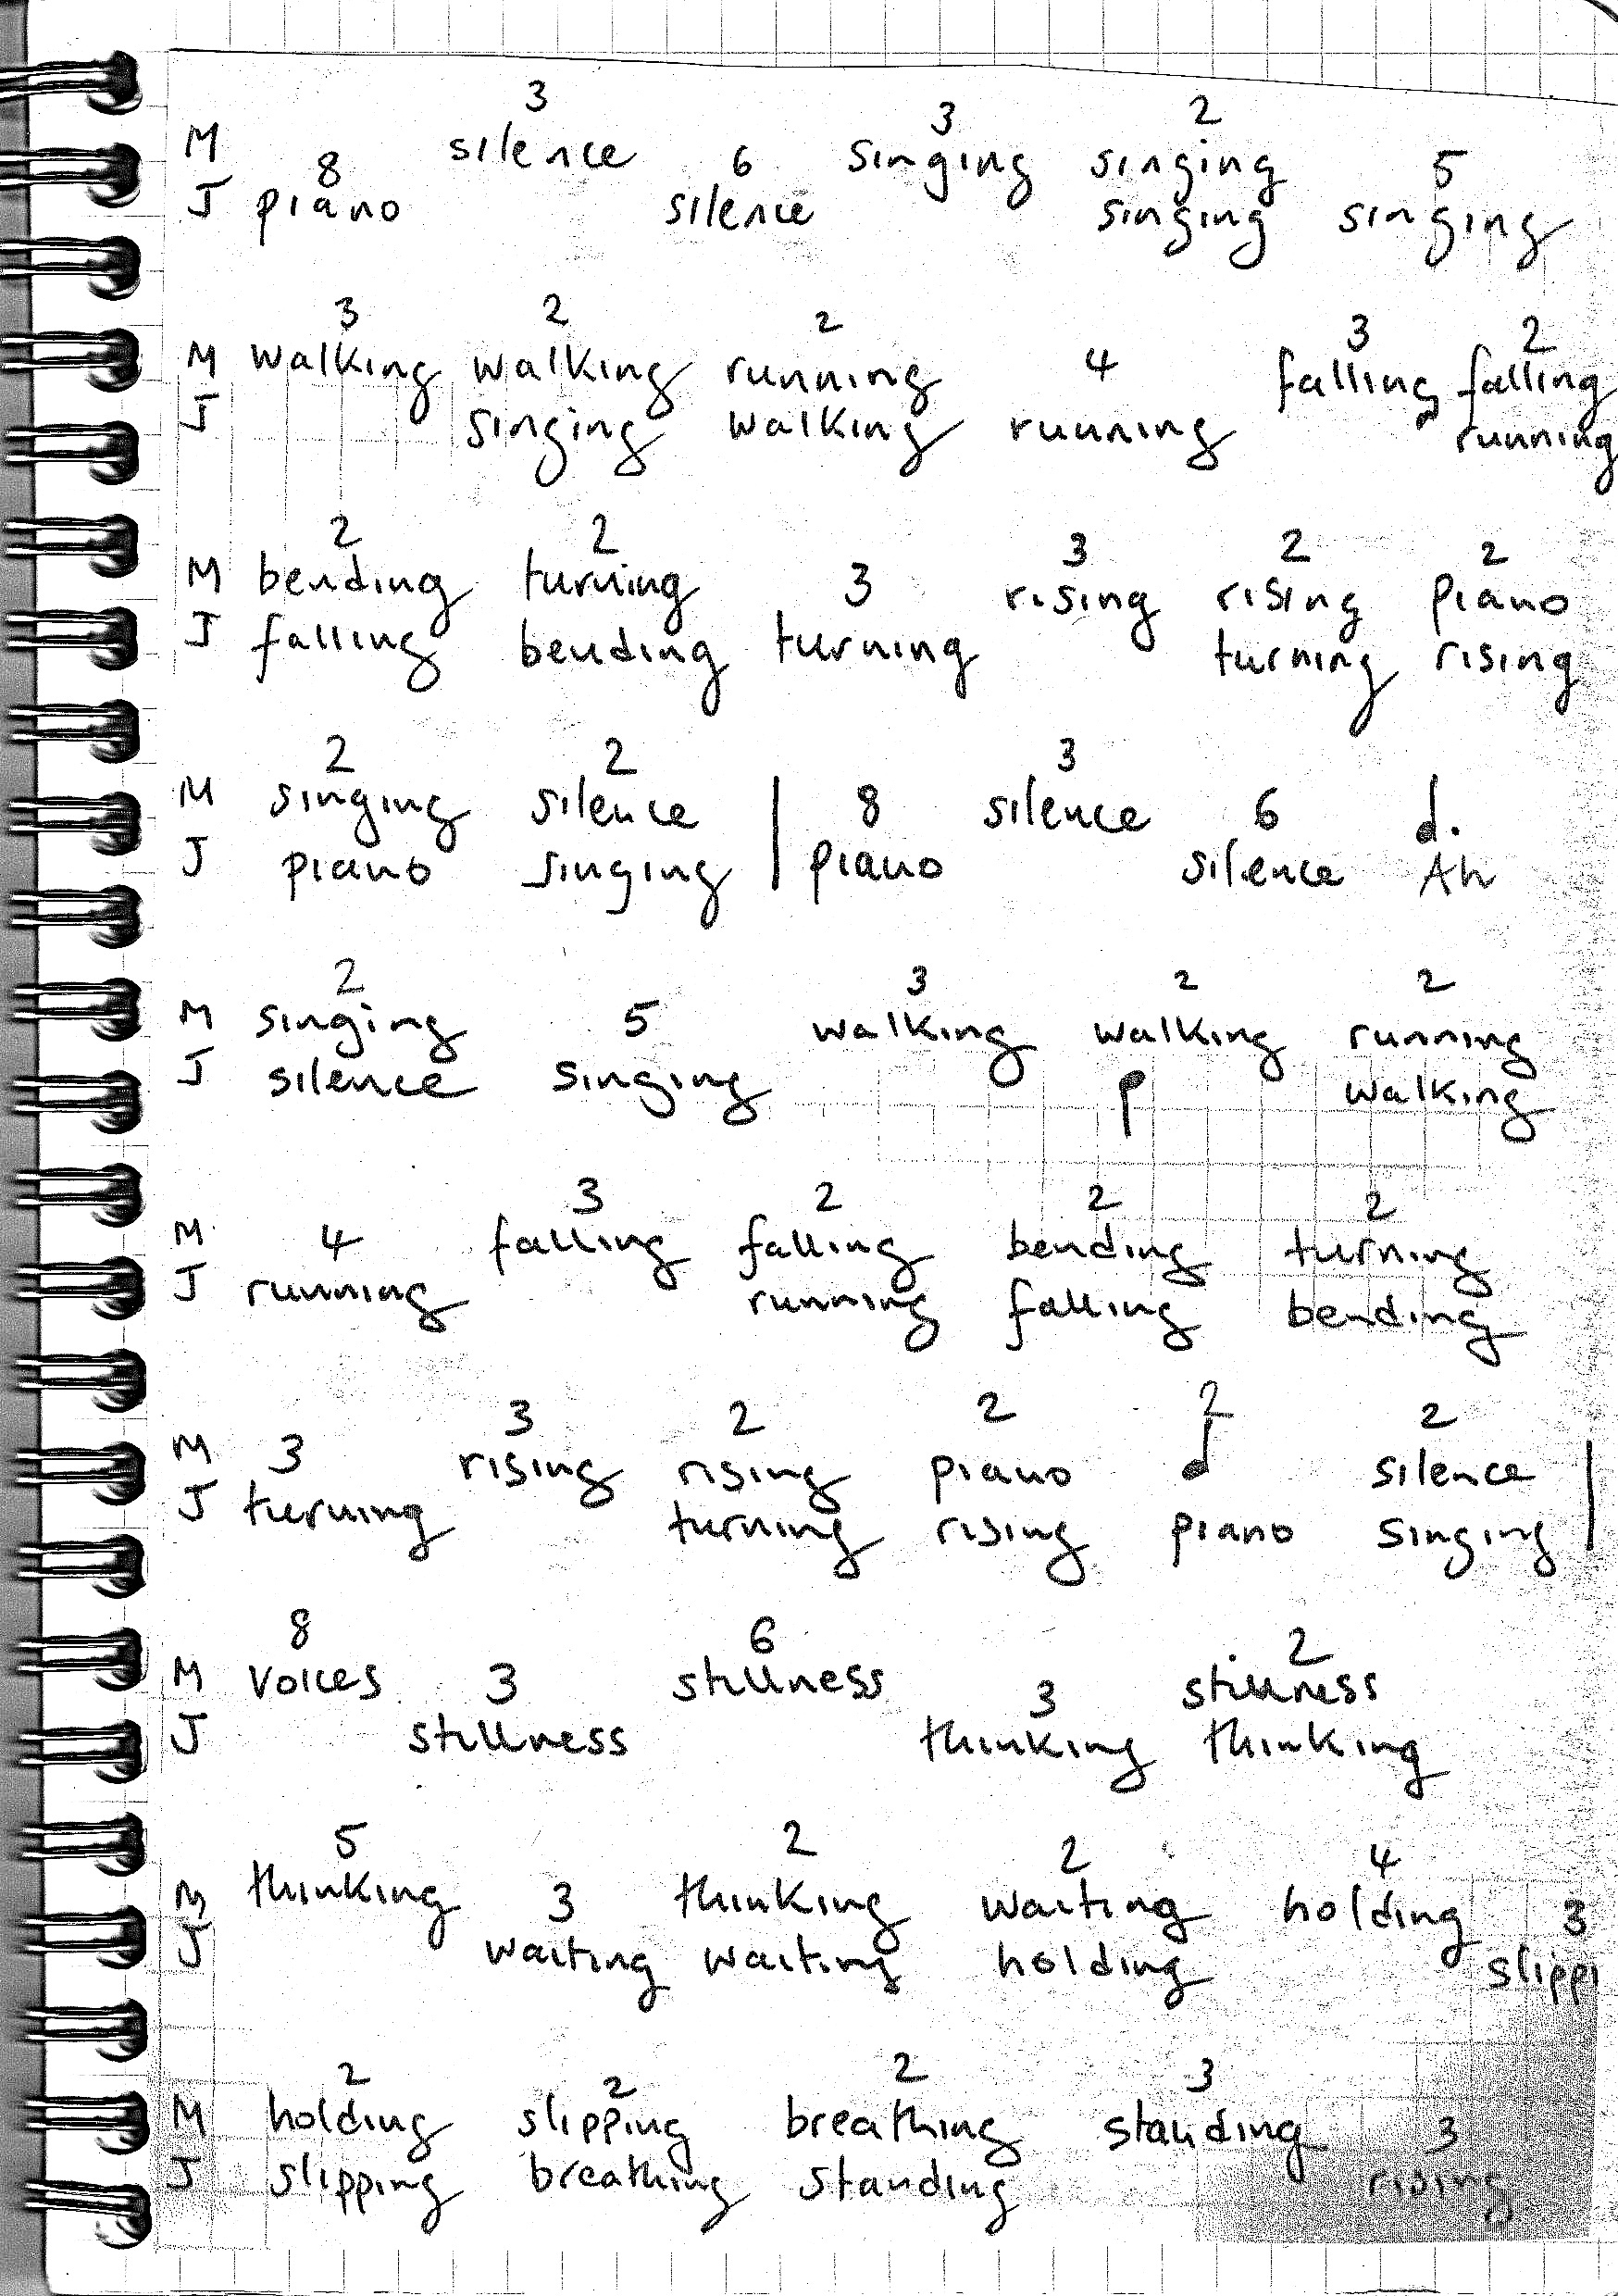 3 3 2
M silence singing singing
8 6 5
J piano silence singing singing
3 2 2 3 2
M walking walking running 4 falling falling
J singing walking running running
2 2 3 2 2
M bending turning 3 rising rising piano
J falling bending turning turning rising
2 2 3
M singing silence | 8 silence 6
J piano singing piano silence Ah
2 3 2 2
M singing 5 walking walking running
J silence singing walking
3 2 2 2
M 4 falling falling bending turning
J running running falling bending
3 2 2 2 2
M 3 rising rising piano silence
J turning turning rising piano singing
8 6 2
M voices 3 stillness 3 stillness
J stillness thinking thinking
5 2 2 4
M thinking 3 thinking waiting holding 3
J waiting waiting holding slippi
2 2 2 3
M holding slipping breathing standing 3
J slipping breathing standing rising